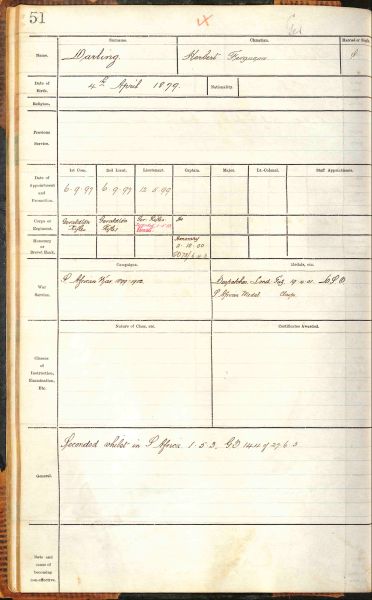 51
Surname.
Christian.
Married or Single.
Name.
Darling
Herbert Ferguson
Date of Birth.
4th April 1879
Nationality.
Religion.
Previous Service.
1st Com.
2nd Lieut.
Lieutenant.
Captain.
Major.
Lt.-Colonel.
Staff Appointments.
Date of Appointment and Promotion.
6-9-97
6-9-97
12-5-99
Corps or Regiment.
Geraldton Rifles
Geraldton Rifles
Ger. Rifles
Do
Honorary or Brevet Rank.
Honorary
Campaigns.
Medals, etc.
War Service.
S African War 1899-1902
Despatches Lond. Gaz. 19-4-01 D S O
S African Medal Clasps
Nature of Class, etc.
Certificates Awarded.
Classes of Instruction, Examination, Etc.
General.
Seconded whilst in S Africa. 1-5-3. GO 144 of 27-6-3
Date and cause of becoming non-effective.